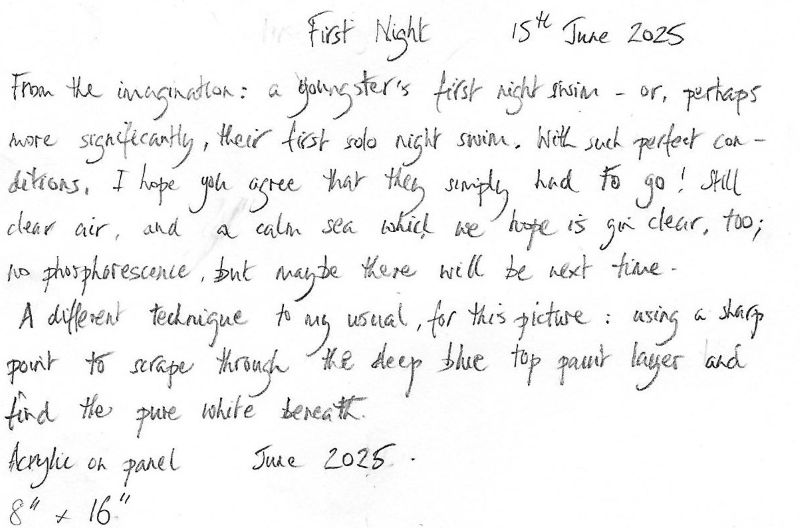 First Night 15th June 2025
From the imagination: a youngster's first night swim - or, perhaps
more significantly, their first solo night swim. With such perfect con-
ditions, I hope you agree that they simply had to go! Still
clear air, and a calm sea which we hope is gin clear, too;
no phosphorescence, but maybe there will be next time.
A different technique to my usual, for this picture: using a sharp
point to scrape through the deep blue top paint layer and
find the pure white beneath.
Acrylic on panel June 2025.
8" x 16"